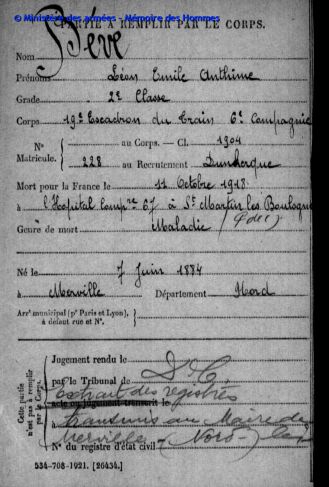 © Ministère des armées - Mémoire des Hommes
PARTIE À REMPLIR PAR LE CORPS.
Nom Dève
Prénoms Léon Emile Anthime
Grade 2e Classe
Corps 19e Escadron du Train 6e Compagnie
N° Matricule. { au Corps. — Cl. 1904
228 au Recrutement Dunkerque
Mort pour la France le 11 Octobre 1918
à l'Hôpital Compre 67 à St Martin les Boulogne
Genre de mort Maladie (P de C)
Né le 7 Juin 1884
à Merville Département Nord
Arrt municipal (pr Paris et Lyon), à défaut rue et N°.
Cette partie n'est pas à remplir par le Corps.
Jugement rendu le D C
par le Tribunal de
extrait des registres
acte ou jugement transcrit le
à transmis au Maire de
Merville (Nord) le
N° du registre d'état civil
534-708-1921. [26434.]